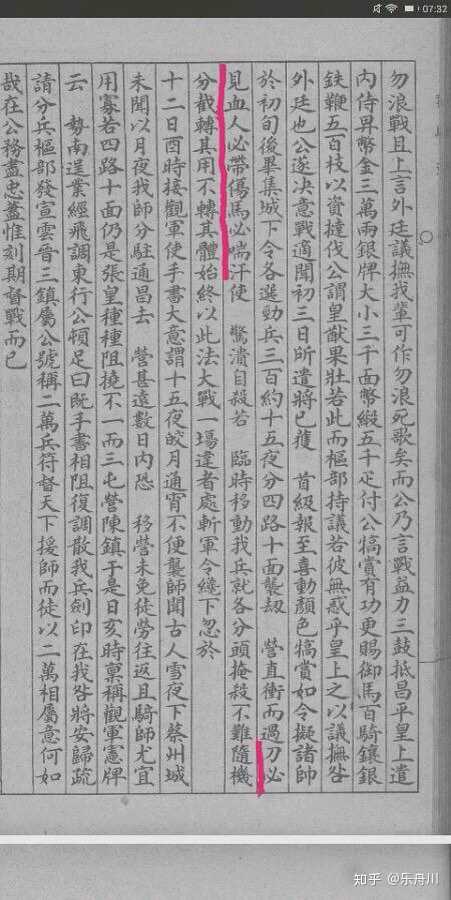 07:32
勿浪戰且上言外廷議撫我輩可作勿浪死歌矣而公乃言戰益力三鼓抵昌平皇上遣
內侍昇幣金三萬兩銀牌大小三千面幣緞五千疋付公犒賞有功更賜御馬百騎鑲銀
鉄鞭五百枝以資撻伐公謂皇猷果壯若此而樞部持議若彼無惑乎皇上之以議撫咎
外廷也公遂決意戰適聞初三日所遣將已獲 首級報至喜動顏色犒賞如令擬諸帥
於初旬後畢集城下令各選勁兵三百約十五夜分四路十面襲刼 營直衝而過刀必
見血人必帶傷馬必喘汗使 驚潰自殺若 臨時移動我兵就各分頭掩殺不難隨機
分截轉其用不轉其體始終以此法大戰 塲違者處斬軍令纔下忽於
十二日酉時接觀軍使手書大意謂十五夜皎月通宵不便襲師聞古人雪夜下蔡州城
未聞以月夜我師分駐通昌去 營甚遠數日內恐 移營未免徒勞往返且騎師尤宜
用寡若四路十面仍是張皇種種阻撓不一而三屯營陳鎮于是日亥時稟稱觀軍憲牌
云 勢南逞業經飛調東行公頓足曰既手書相阻復調散我兵劍印在我咎將安歸疏
請分兵樞部發宣雲晉三鎮屬公號稱二萬兵符督天下援師而徒以二萬相屬意何如
哉在公務盡忠藎惟刻期督戰而已
知乎 @乐舟川